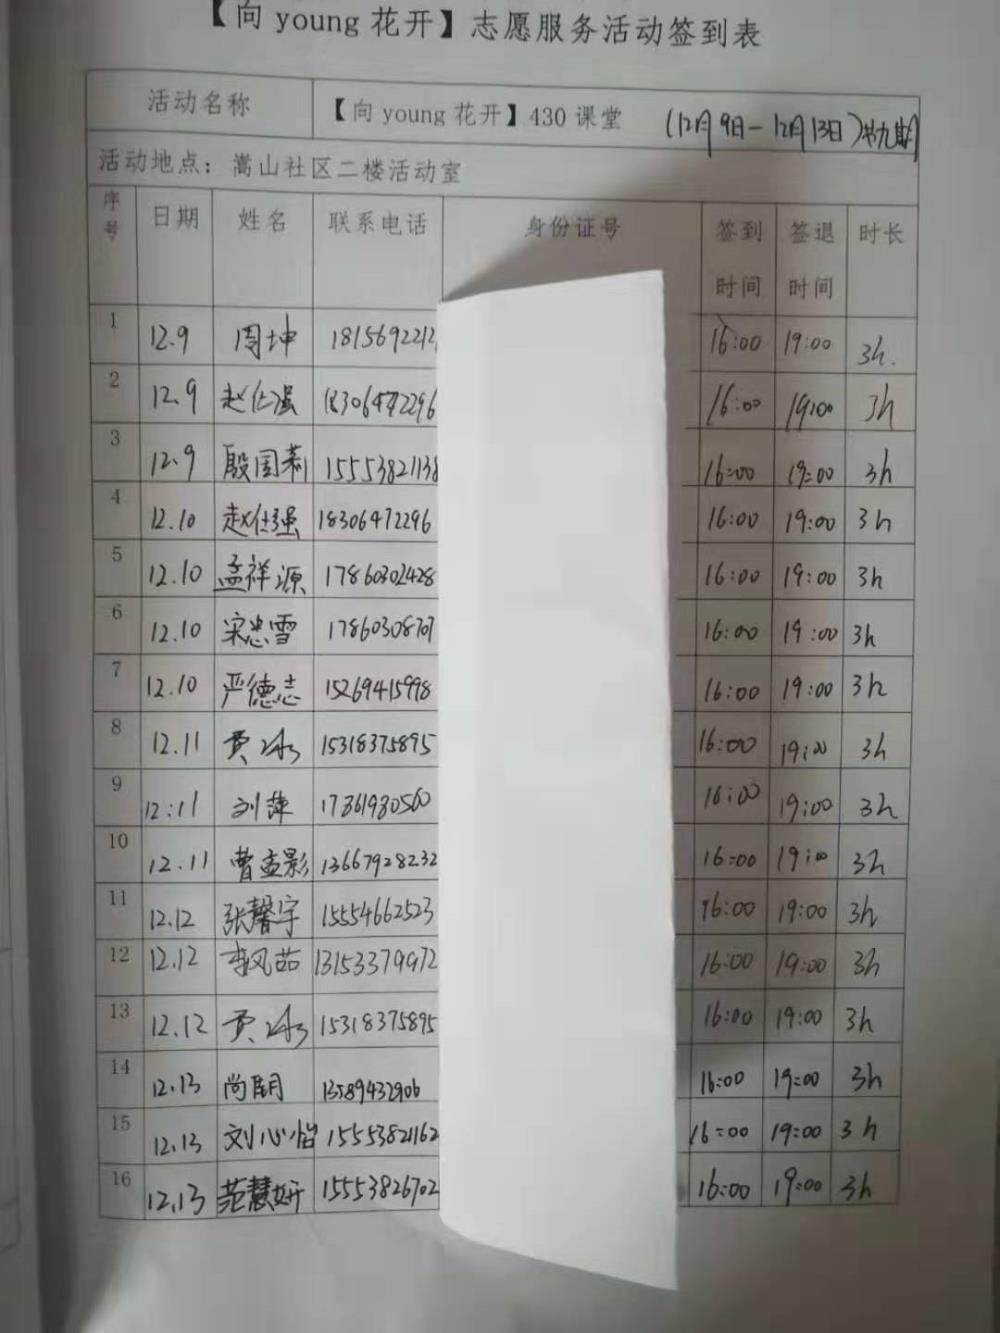 【向 young 花开】志愿服务活动签到表
活动名称 【向 young 花开】430 课堂 (12月9日-12月13日)第九期
活动地点：嵩山社区二楼活动室
序号 日期 姓名 联系电话 身份证号 签到时间 签退时间 时长
1 12.9 周坤 1815692212 16:00 19:00 3h.
2 12.9 赵仕强 18306472296 16:00 19:00 3h
3 12.9 殷国莉 15553821138 16:00 19:00 3h
4 12.10 赵仕强 18306472296 16:00 19:00 3h
5 12.10 孟祥源 17860302428 16:00 19:00 3h
6 12.10 宋忠雪 17860308707 16:00 19:00 3h
7 12.10 严德志 15269415998 16:00 19:00 3h
8 12.11 贾冰 15318375895 16:00 19:00 3h
9 12:11 刘萍 17861980560 16:00 19:00 3h
10 12.11 曹孟影 13667928232 16:00 19:00 3h
11 12.12 张馨宇 15554662523 16:00 19:00 3h
12 12.12 李风茹 13153379972 16:00 19:00 3h
13 12.12 贾冰 15318375895 16:00 19:00 3h
14 12.13 尚 13589432906 16:00 19:00 3h
15 12.13 刘心怡 15553821162 16:00 19:00 3h
16 12.13 范慧妍 15553826702 16:00 19:00 3h